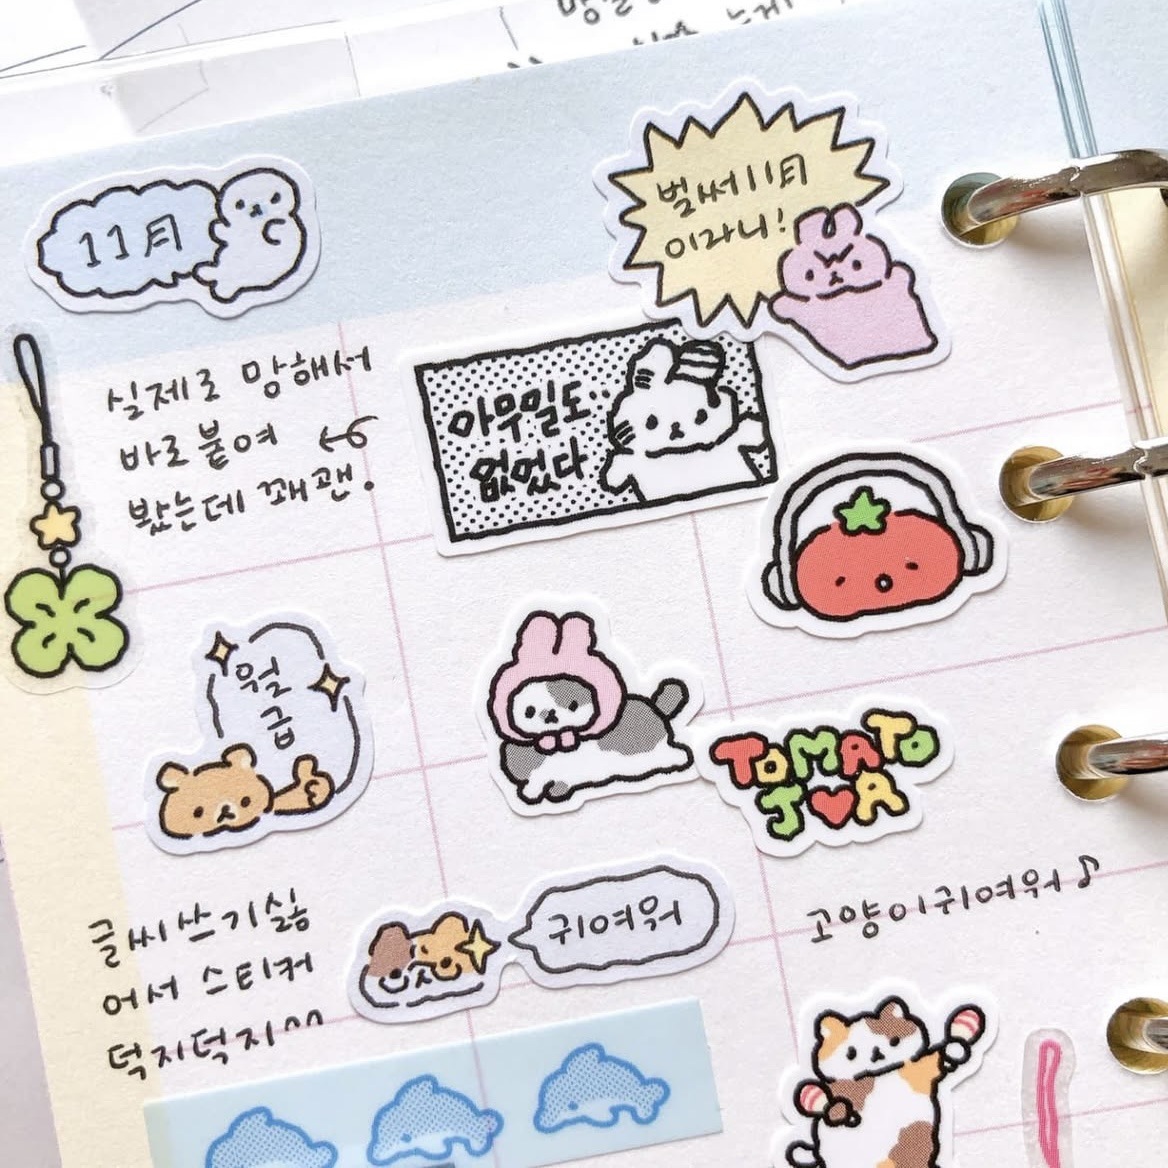 11月
벌써 11月
이라니!
실제로 망해서
바로 붙여
봤는데 꽤괜.
아무일도..
없었다
월
급
TOMATO
J♥A
글씨쓰기싫
어서 스티커
덕지덕지^^
귀여워
고양이귀여워♪